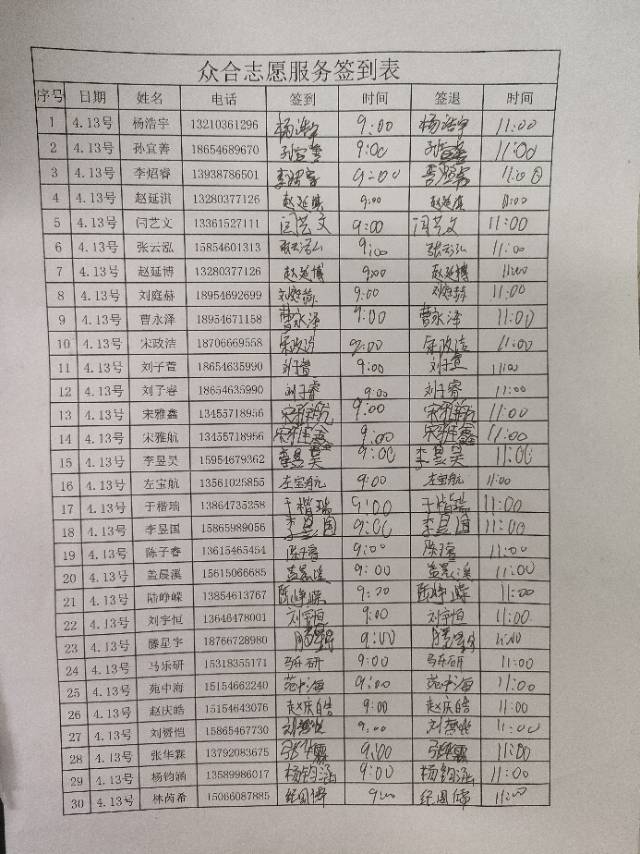 众合志愿服务签到表
序号 日期 姓名 电话 签到 时间 签退 时间
1 4.13号 杨浩宇 13210361296 杨浩宇 9:00 杨浩宇 11:00
2 4.13号 孙宜善 18654689670 孙宜善 9:00 孙宜善 11:00
3 4.13号 李炤睿 13938786501 李炤睿 9:00 11:00
4 4.13号 赵延淇 13280377126 赵延淇 9:00 赵延淇 11:00
5 4.13号 闫艺文 13361527111 闫艺文 9:00 闫艺文 11:00
6 4.13号 张云泓 15854601313 张云泓 9:00 张云泓 11:00
7 4.13号 赵延博 13280377126 赵延博 9:00 赵延博 11:00
8 4.13号 刘庭赫 18954692699 刘庭赫 9:00 刘庭赫 11:00
9 4.13号 曹永泽 18954671158 曹永泽 9:00 曹永泽 11:00
10 4.13号 宋政洁 18706669558 宋政洁 9:00 宋政洁 11:00
11 4.13号 刘子萱 18654635990 刘子萱 9:00 刘子萱 11:00
12 4.13号 刘子睿 18654635990 刘子睿 9:00 刘子睿 11:00
13 4.13号 宋雅鑫 13455718956 宋雅航 9:00 宋雅航 11:00
14 4.13号 宋雅航 13455718956 宋雅鑫 9:00 宋雅鑫 11:00
15 4.13号 李昱昊 15954679362 李昱昊 9:00 李昱昊 11:00
16 4.13号 左宝航 13561025855 左宝航 9:00 左宝航 11:00
17 4.13号 于楷瑞 13864735258 于楷瑞 9:00 于楷瑞 11:00
18 4.13号 李昱国 15865989056 李昱国 9:00 李昱国 11:00
19 4.13号 陈子睿 13615465454 陈子睿 9:00 陈子睿 11:00
20 4.13号 盖晨溪 15615066685 盖晨溪 9:00 盖晨溪 11:00
21 4.13号 陆峥嵘 13854613767 陆峥嵘 9:00 陆峥嵘 11:00
22 4.13号 刘宇恒 13646478001 刘宇恒 9:00 刘宇恒 11:00
23 4.13号 滕星宇 18766728980 9:00 11:00
24 4.13号 马乐研 15318355171 马乐研 9:00 马乐研 11:00
25 4.13号 苑中海 15154662240 苑中海 9:00 苑中海 11:00
26 4.13号 赵庆皓 15154643076 赵庆皓 9:00 赵庆皓 11:00
27 4.13号 刘赟恺 15865467730 9:00 11:00
28 4.13号 张华霖 13792083675 张华霖 9:00 张华霖 11:00
29 4.13号 杨钧涵 13589986017 杨钧涵 9:00 杨钧涵 11:00
30 4.13号 林芮希 15066087885 9:00 11:00